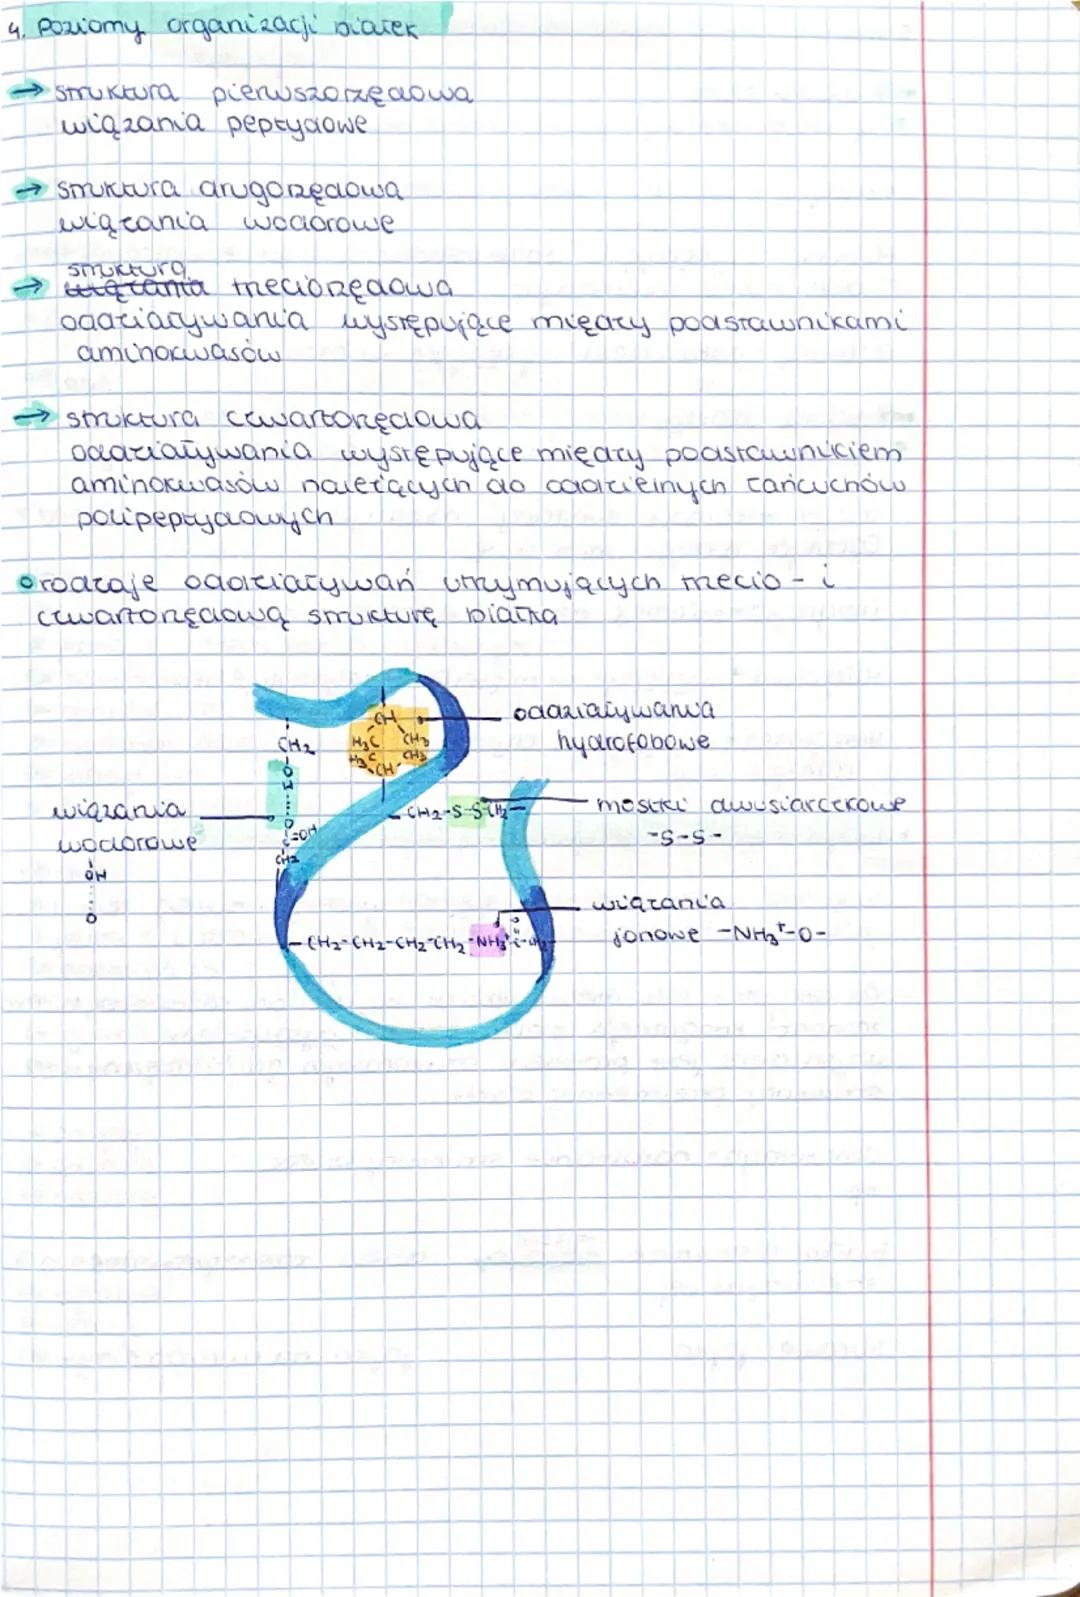 4. Poziomy organizacji białek
→ struktura pierwszorzędowa
wiązania peptydowe
→ struktura drugorzędowa
wiązania wodorowe
struktura
→ wiązania trzeciorzędowa
oddziaływania występujące między podstawnikami
aminokwasów
→ struktura czwartorzędowa
oddziaływania występujące między podstawnikiem
aminokwasów należących do oddzielnych łańcuchów
polipeptydowych
rodzaje oddziaływań utrzymujących trzecio- i
czwartorzędową strukturę białka
oddziaływania
hydrofobowe
CH
H₃C CH₃
H₃C CH₃
CH
CH₂
-O-H·····O
C=OH
CH₂
wiązania
wodorowe
OH
·····
O
-CH₂-S-S-CH₂-
mostki dwusiarczkowe
-S-S-
wiązania
jonowe -NH₃⁺-O-
-CH₂-CH₂-CH₂-CH₂-NH₃⁺